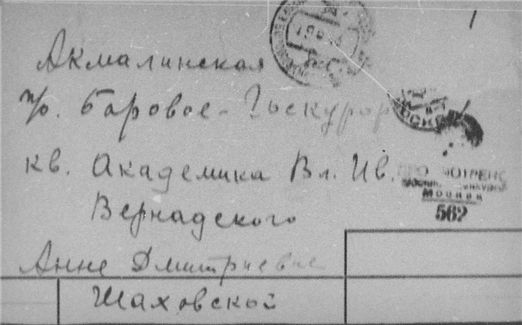 1
Акмалинская
п/о. Боровое-Госкурор
кв. Академика Вл. Ив.
Вернадского
Анне Дмитриевне
Шаховской
ПРОСМОТРЕНО
Москва
562